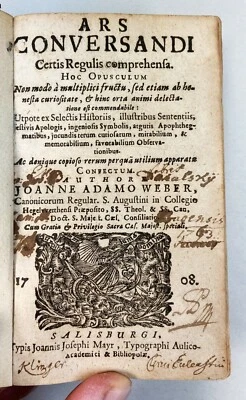 ARS
CONVERSANDI
Certis Regulis comprehensa.
HOC OPUSCULUM
Non modò à multiplici fructu, sed etiam ab ho-
nesta curiositate, & hinc orta animi delectatio-
ne est commendabile:
Utpote ex Selectis Historiis, illustribus Sententiis,
festivis Apologis, ingeniosis Symbolis, argutis Apophtheg-
matibus, jucundis rerum curiosarum, mirabilium, &
memorabilium, Observatio-
nibus.
Ac denique copioso rerum perquà utilium apparatu
CONFECTUM.
AUTHORE
JOANNE ADAMO WEBER,
Canonicorum Regular. S. Augustini in Collegio
Præposito, SS. Theol. & SS. Can.
Doct. S. Maje. Cæs. Consiliario
Cum Gratia & Privilegio Sacra Cæs. Majest. speciali.
17 08.
SALISBURGI,
Typis Joannis Josephi Mayr, Typographi Aulico-
Academici & Bibliopolæ